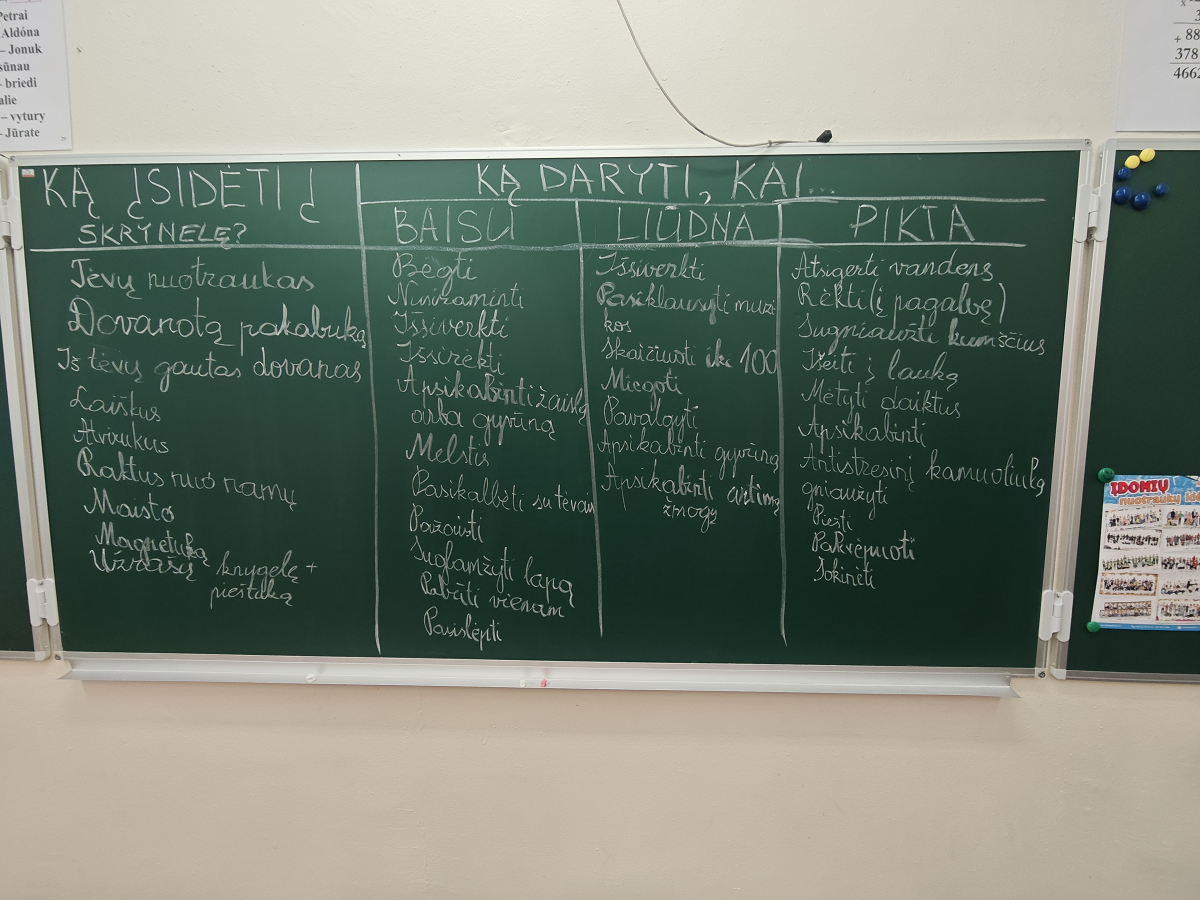 Petrai
Aldóna
– Jonuk
sūnau
– briedi
alie
– vytury
– Jūrate
3
+ 88
378
4662
KĄ ĮSIDĖTI Į
SKRYNELĘ?
Tėvų nuotraukas
Dovanotą pakabuką
Iš tėvų gautas dovanas
Laiškus
Atvirukus
Raktus nuo namų
Maisto
Magnetuką
Užrašų knygelę +
pieštuką
KĄ DARYTI, KAI...
BAISU
Bėgti
Nusiraminti
Išsiverkti
Išsirėkti
Apsikabinti žaislą
arba gyvūną
Melstis
Pasikalbėti su tėvais
Pažaisti
Suglamžyti lapą
Pabūti vienam
Pasislėpti
LIŪDNA
Išsiverkti
Pasiklausyti muzi-
kos
Skaičiuoti iki 100
Miegoti
Pavalgyti
Apsikabinti gyvūną
Apsikabinti artimą
žmogų
PIKTA
Atsigerti vandens
Rėkti (į pagalvę)
Sugniaužti kumščius
Išeiti į lauką
Mėtyti daiktus
Apsikabinti
Antistresinį kamuoliuką
gniaužyti
Piešti
Pakvėpuoti
Šokinėti
ĮDOMIŲ
nuotraukų